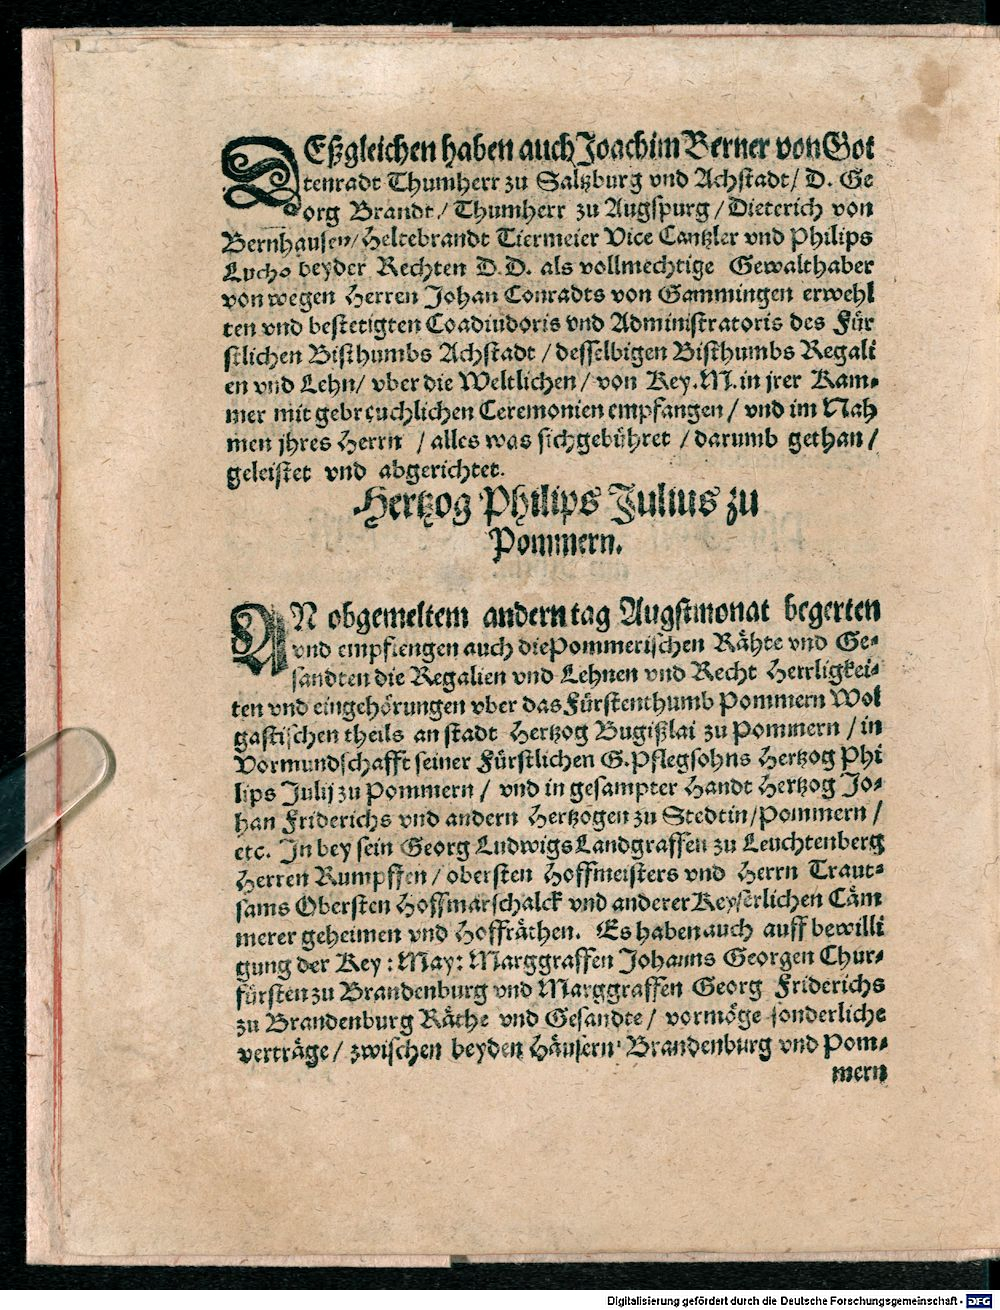 DEßgleichen haben auch Joachim Berner von Got
tenradt Thumherr zu Saltzburg vnd Achstadt/ D. Ge
org Brandt/ Thumherr zu Augspurg/ Dieterich von
Bernhausen/ Heltebrandt Tiermeier Vice Cantzler vnd Philips
Luchs beyder Rechten D.D. als vollmechtige Gewalthaber
von wegen Herren Johan Conradts von Gammingen erwehl
ten vnd bestetigten Coadiudoris vnd Administratoris des Für
stlichen Bisthumbs Achstadt/ desselbigen Bisthumbs Regali
en vnd Lehn/ vber die Weltlichen/ von Key. M. in jrer Kam⸗
mer mit gebreuchlichen Ceremonien empfangen/ vnd im Nah
men jhres Herrn / alles was sich gebühret / darumb gethan/
geleistet vnd abgerichtet.
Hertzog Philips Julius zu
Pommern.
AN obgemeltem andern tag Augstmonat begerten
vnd empfiengen auch die Pommerischen Rähte vnd Ge⸗
sandten die Regalien vnd Lehnen vnd Recht Herrligkei⸗
ten vnd eingehörungen vber das Fürstenthumb Pommern Wol
gastischen theils an stadt Hertzog Bugißlai zu Pommern / in
Vormundschafft seiner Fürstlichen G. Pflegsohns Hertzog Phi
lips Julij zu Pommern / vnd in gesampter Handt Hertzog Jo⸗
han Friderichs vnd andern Hertzogen zu Stedtin/ Pommern /
etc. In bey sein Georg Ludwigs Landgraffen zu Leuchtenberg
Herren Rumpffen/ obersten Hoffmeisters vnd Herrn Traut⸗
sams Obersten Hoffmarschalck vnd anderer Keyserlichen Cäm
merer geheimen vnd Hoffräthen. Es haben auch auff bewilli
gung der Key: May: Marggraffen Johanns Georgen Chur⸗
fürsten zu Brandenburg vnd Marggraffen Georg Friderichs
zu Brandenburg Räthe vnd Gesandte/ vormöge sonderliche
verträge/ zwischen beyden Häusern Brandenburg vnd Pom⸗
mern
Digitalisierung gefördert durch die Deutsche Forschungsgemeinschaft - DFG